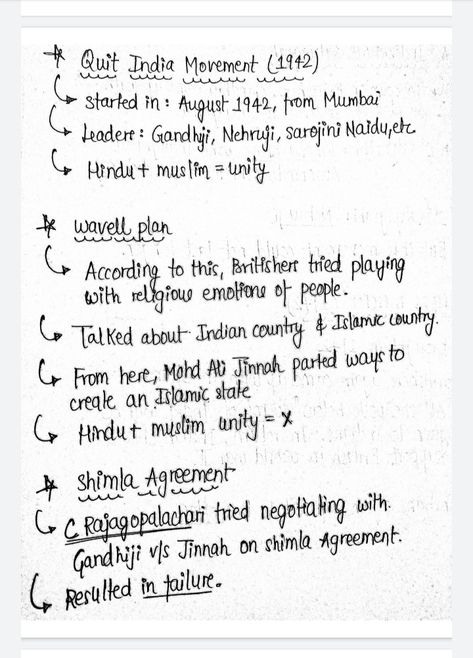 * Quit India Movement (1942)
↳ Started in : August 1942, from Mumbai
↳ Leaders : Gandhiji, Nehruji, Sarojini Naidu, etc.
↳ Hindu + muslim = unity
* wavell plan
↳ According to this, Britishers tried playing
with religious emotions of people.
↳ Talked about Indian country & Islamic country.
↳ From here, Mohd Ali Jinnah parted ways to
create an Islamic state
↳ Hindu + muslim unity = x
* Shimla Agreement
↳ C Rajagopalachari tried negotiating with
Gandhiji v/s Jinnah on shimla Agreement.
↳ Resulted in failure.